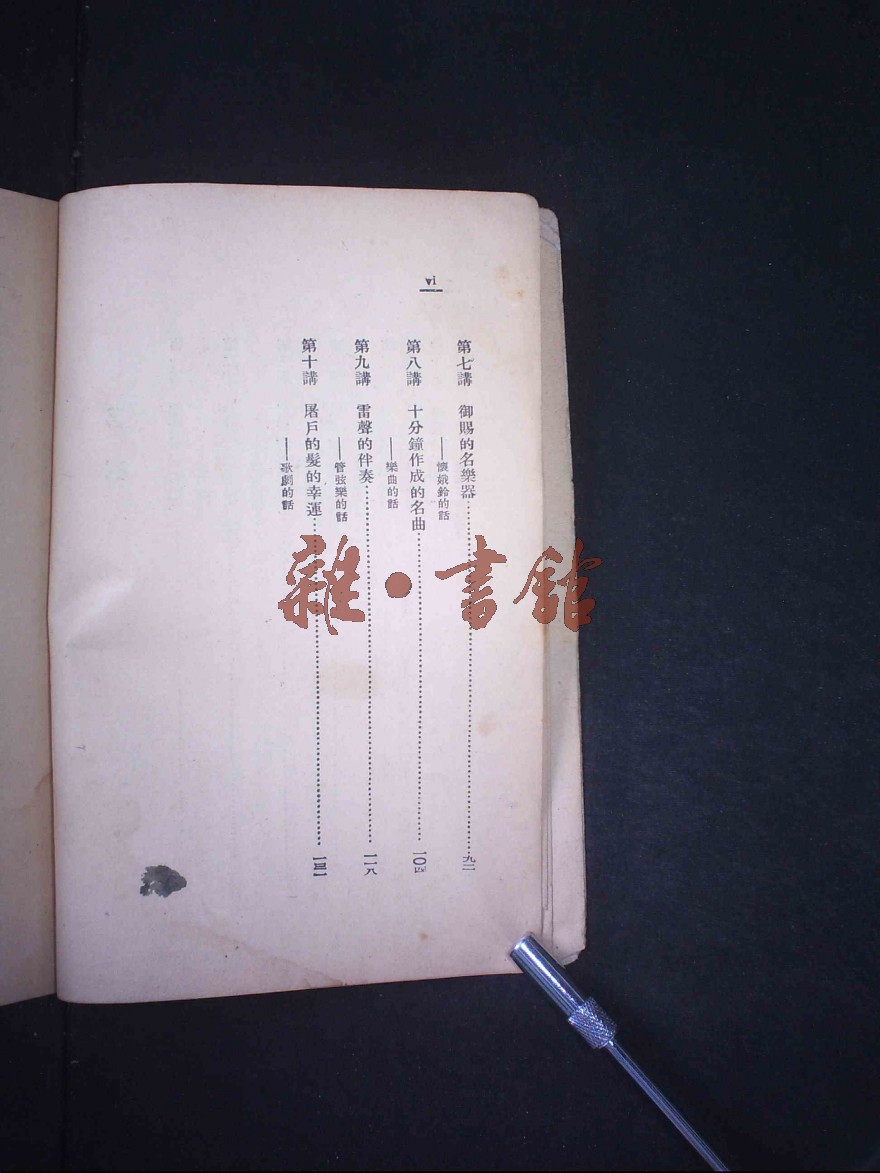 vi
第七講　御賜的名樂器……九二
——懷娥鈴的話
第八講　十分鐘作成的名曲……一〇四
——樂曲的話
第九講　雷聲的伴奏……一一八
——管弦樂的話
第十講　屠戶的髮的幸運……一三二
——歌劇的話
雜·書館